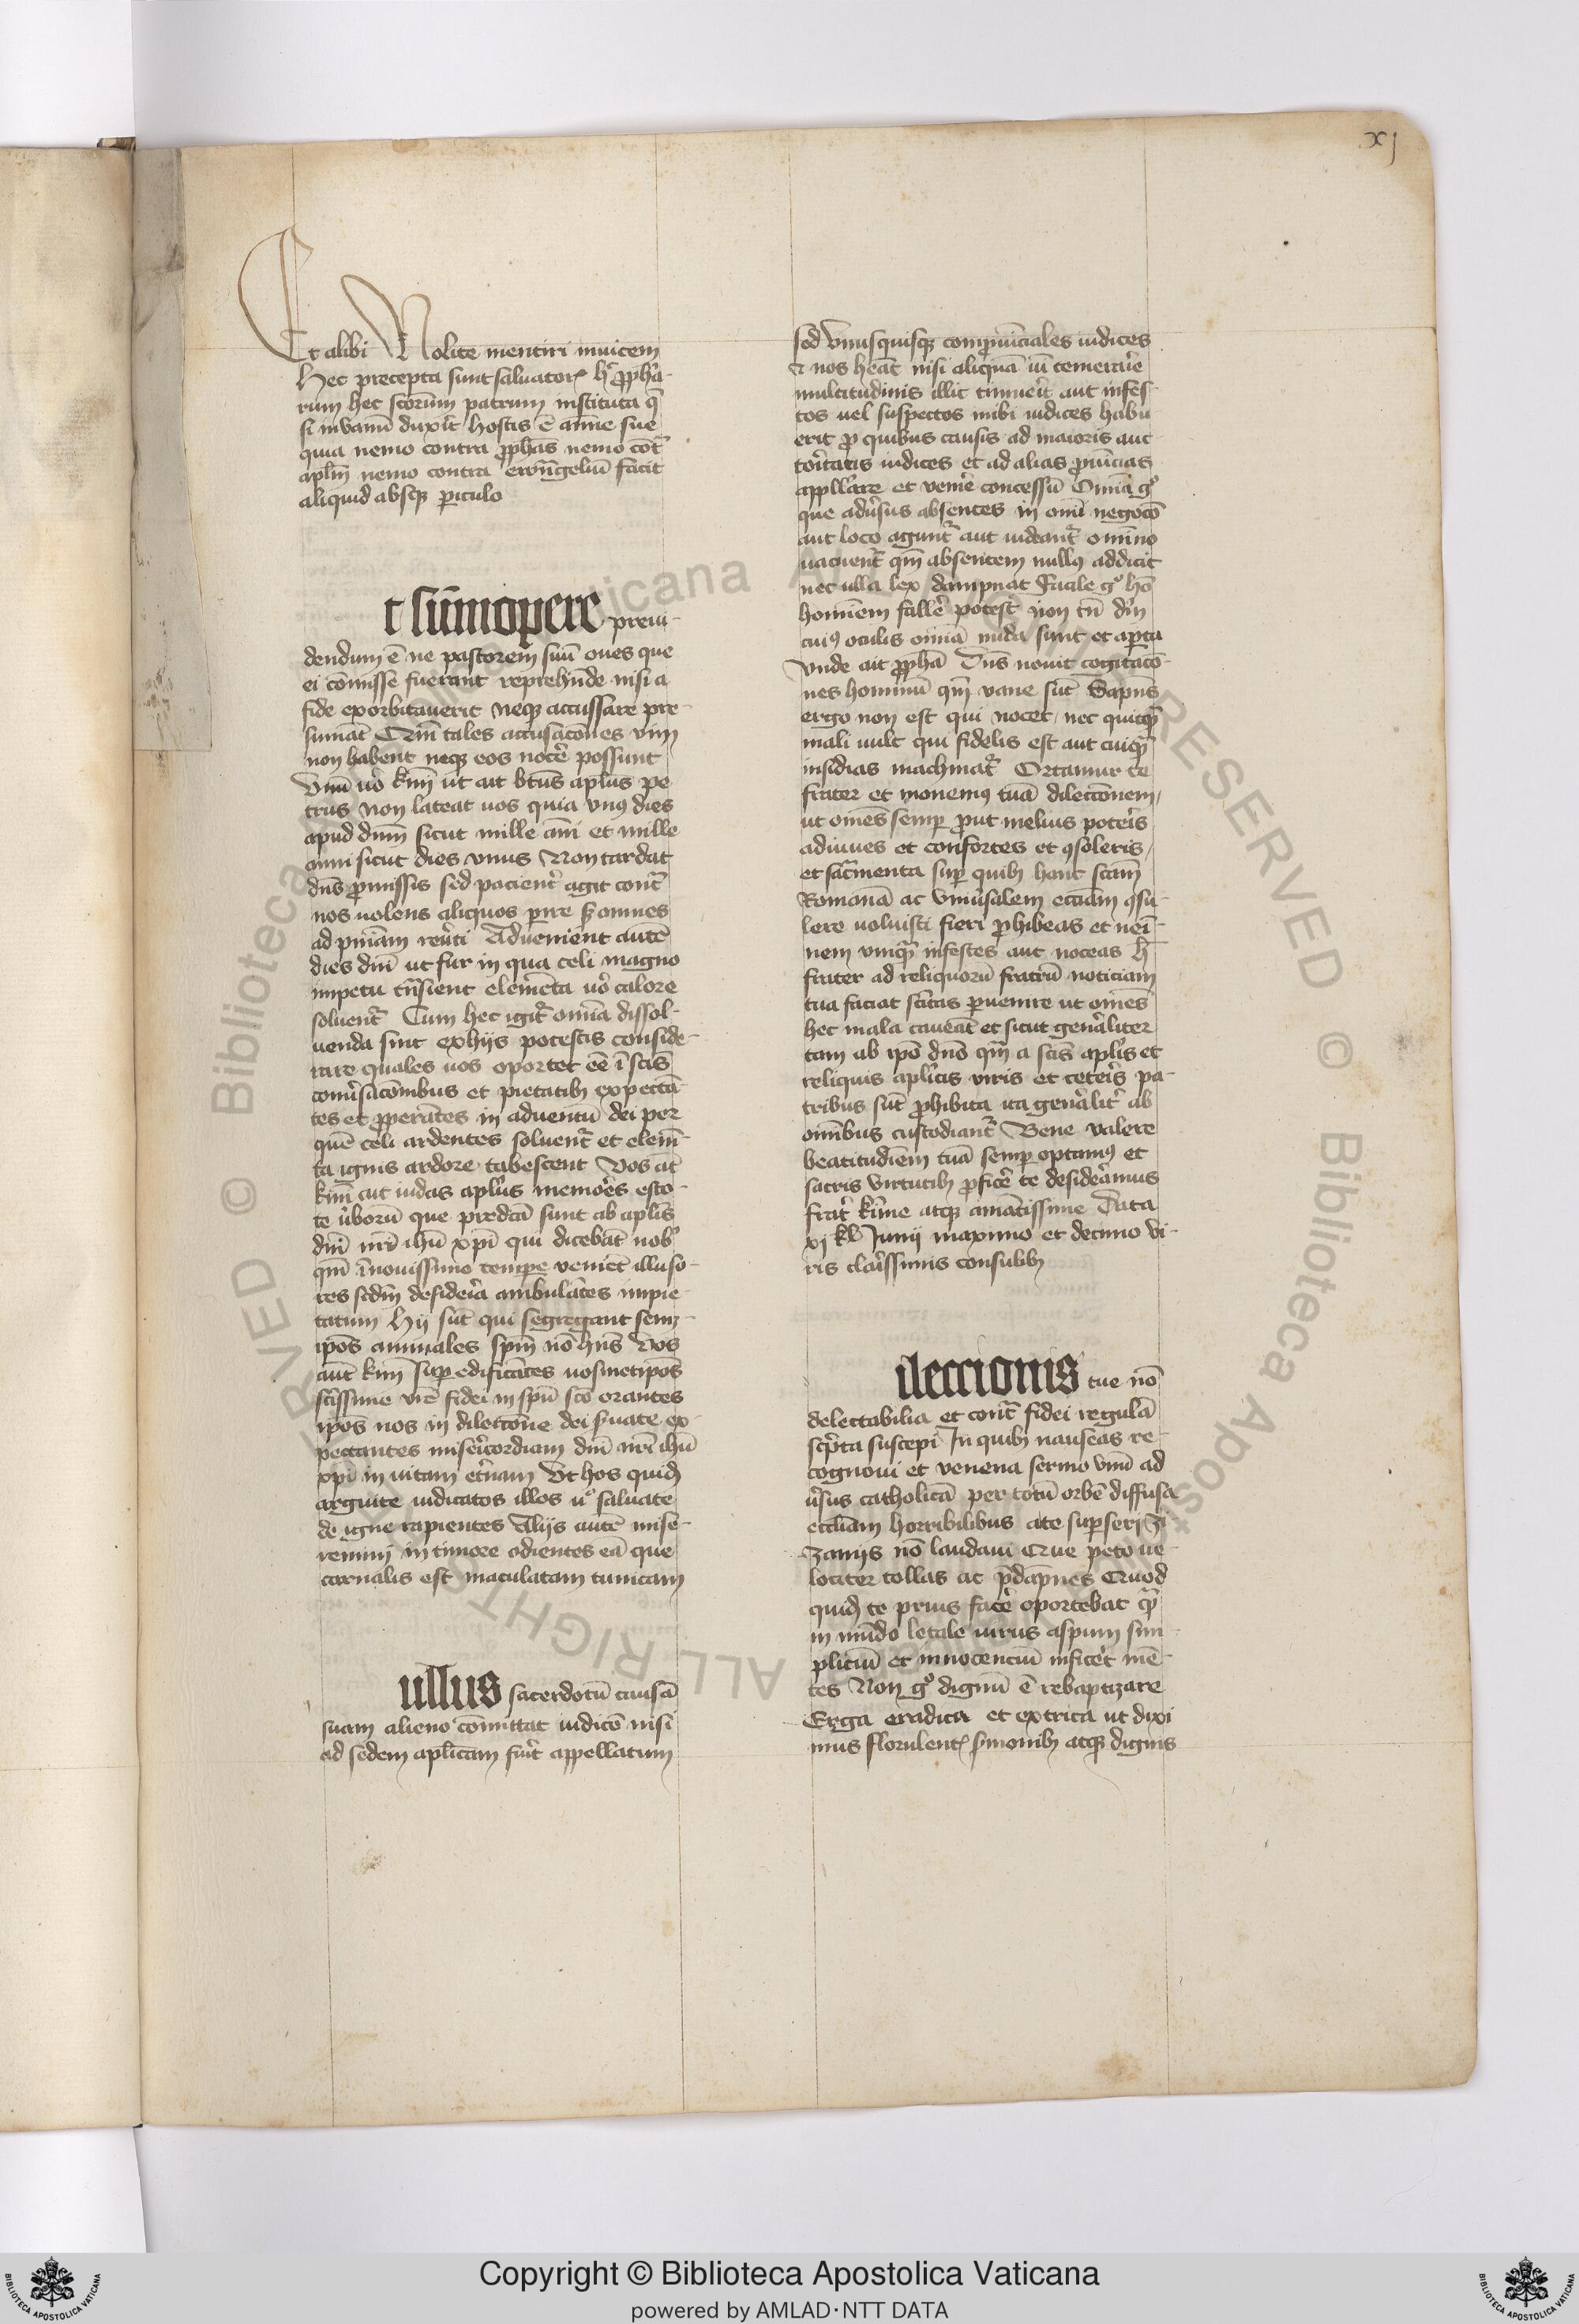 xj
Et alibi Nolite mentiri inuicem
Hec precepta sunt saluatoris hec ꝓphā-
rum hec scōrum patrum instituta q̄
si in vanū duxīt hostis ē anīe sue
quia nemo contra ꝓphās nemo cōt̄
apl̄m nemo contra ewāngeliū facit
aliquid absqꝫ piculo
t sūmopere preui-
dendum ē ne pastorem suū oues que
ei cōmisse fuerant reprehn̄de nisi a
fide exorbitauerit neqꝫ accussare pre-
sumāt Qm̄ tales accusacōnes vim
non habent neqꝫ eos nocē possunt
Vnū uō km̄i ut ait btūs aplūs pe
trus non lateat uos quia vnꝰ dies
apud dnm̄ sicut mille ānī et mille
anni sicut dies vnus Non tardat
dn̄s ꝓmissis sed pacient̄ agit cont̄
nos nolens aliquos pire sꝫ omnes
ad pnīam reūti Aduenient autē
dies dnī ut fur in qua celi magno
impetu tn̄sient elemēta uō calore
soluent̄ Cum hec igit̄ omīa dissol-
uenda sint ex hijs potestis conside-
rare quales uos oportet eē ī scīs
conūsacōnibus et pietatibꝫ expectā
tes et ꝓperātes in aduentū dei per
quē celi ardentes soluent̄ et elem̄
ta ignis ardore tabescent Vos at̄
km̄i ait iudas aplūs memōes esto-
te ūborū que predcā sunt ab aplīs
dnī nrī ihū xpī qui dicebāt nobꝰ
qm̄ ī nouissimo tempore venīet illuso-
res scdm̄ desidēia ambulātes impie-
tatum Hij sūt qui segregant sem-
ipōs animales spm̄ nō hn̄s Vos
aūt km̄i sup edificātes uosmetipōs
scīssime vrē fidei in spū scō orantes
ipōs uos in dileccōne dei ſuate ex-
pectantes misēicordiam dnī nrī ihū
xpī in uitam etn̄am Et hos quidꝫ
arguite iudicatos illos uº saluate
de igne rapientes Alijs autē mise-
remini in timore odientes eā que
carnalis est maculatam tunicam
ullus sacerdotū causā
suam alieno cōmittat iudicō nisi
ad sedem aplīcam fūīt appellatum
sed vnusquisqꝫ comꝓuīciales iudices
et nos hēat nisi aliquā iū temerāie
multitudinis illic timuēit aut infes-
tos uel suspectos mibi iudices habu
erit ꝓ quibus causis ad maioris auc
tōitatis iudices et ad alias ꝓuīcias
appllāre et venīe concessū Omīa gº
que adūsus absentes in omī negocō
aut loco agunt̄ aut iudcānt̄ omīno
uacuent̄ qm̄ absentem nullꝰ addicit
nec ulla lex dampnat Facile gº hō
homīem fallē potest non tn̄ dm̄
cuiꝰ oculis omīa nuda sunt et apta
Vnde ait ꝓphā Dn̄s nouit cogitacō-
nes hominū qm̄ vane sūt Sapn̄s
ergo non est qui nocet nec quicq̄
mali uult qui fidelis est aut cuiq̄
insidias machinat̄ Ortamur te
frater et monemꝰ tuā dileccōnem
ut omēs semp ꝓut melius potēis
adiuues et confortes et ꝯsoleris
et sacm̄enta sup quibꝫ hanc scām
Romanā ac vniūsalem eccīam ꝯsu-
lere uoluisti fieri ꝓhibeas et neī-
nem vnīq̄ infestes aut noceas h̄
frater ad reliquorū fratrū noticiam
tua faciat scītas puenire ut omēs
hec mala caueāt et sicut genāliter
tam ab ipō dnō qm̄ a scīs aplīs et
reliquis aplīcis viris et cetēis pa-
tribus sūt ꝓhibita ita genālit̄ ab
omībus custodiant̄ Bene valere
beatitudīem tuā semp optamꝰ et
sacris virtutibꝫ ꝓficē te desidēamus
frat̄ kīme atqꝫ amātissime Data
xj kl Junij maximo et decimo vi-
ris clāissimis consulibꝫ
ileccionis tue nō
delectabilia et cont̄ fidei regulā
scp̄ta suscepi In quibꝫ nauseas re-
cognoui et venena sermo vnū ad
ūsus catholicā per totū orbē diffusā
eccliam horribilibus a te supseri zi-
zanijs nō laudaui Que peto ue-
lociter tollas ac pdāpnes Quod
quidꝫ te prius facē oportebat q̄
in mūdo letale uirus aspum sim
pliciū et innocenciū inficēt mē-
tes Non gº dignū ē rebaptizare
Erga eradica et extrica ut dixi
mus florulentis ſmonibꝫ atqꝫ dignis
Copyright © Biblioteca Apostolica Vaticana
powered by AMLAD·NTT DATA